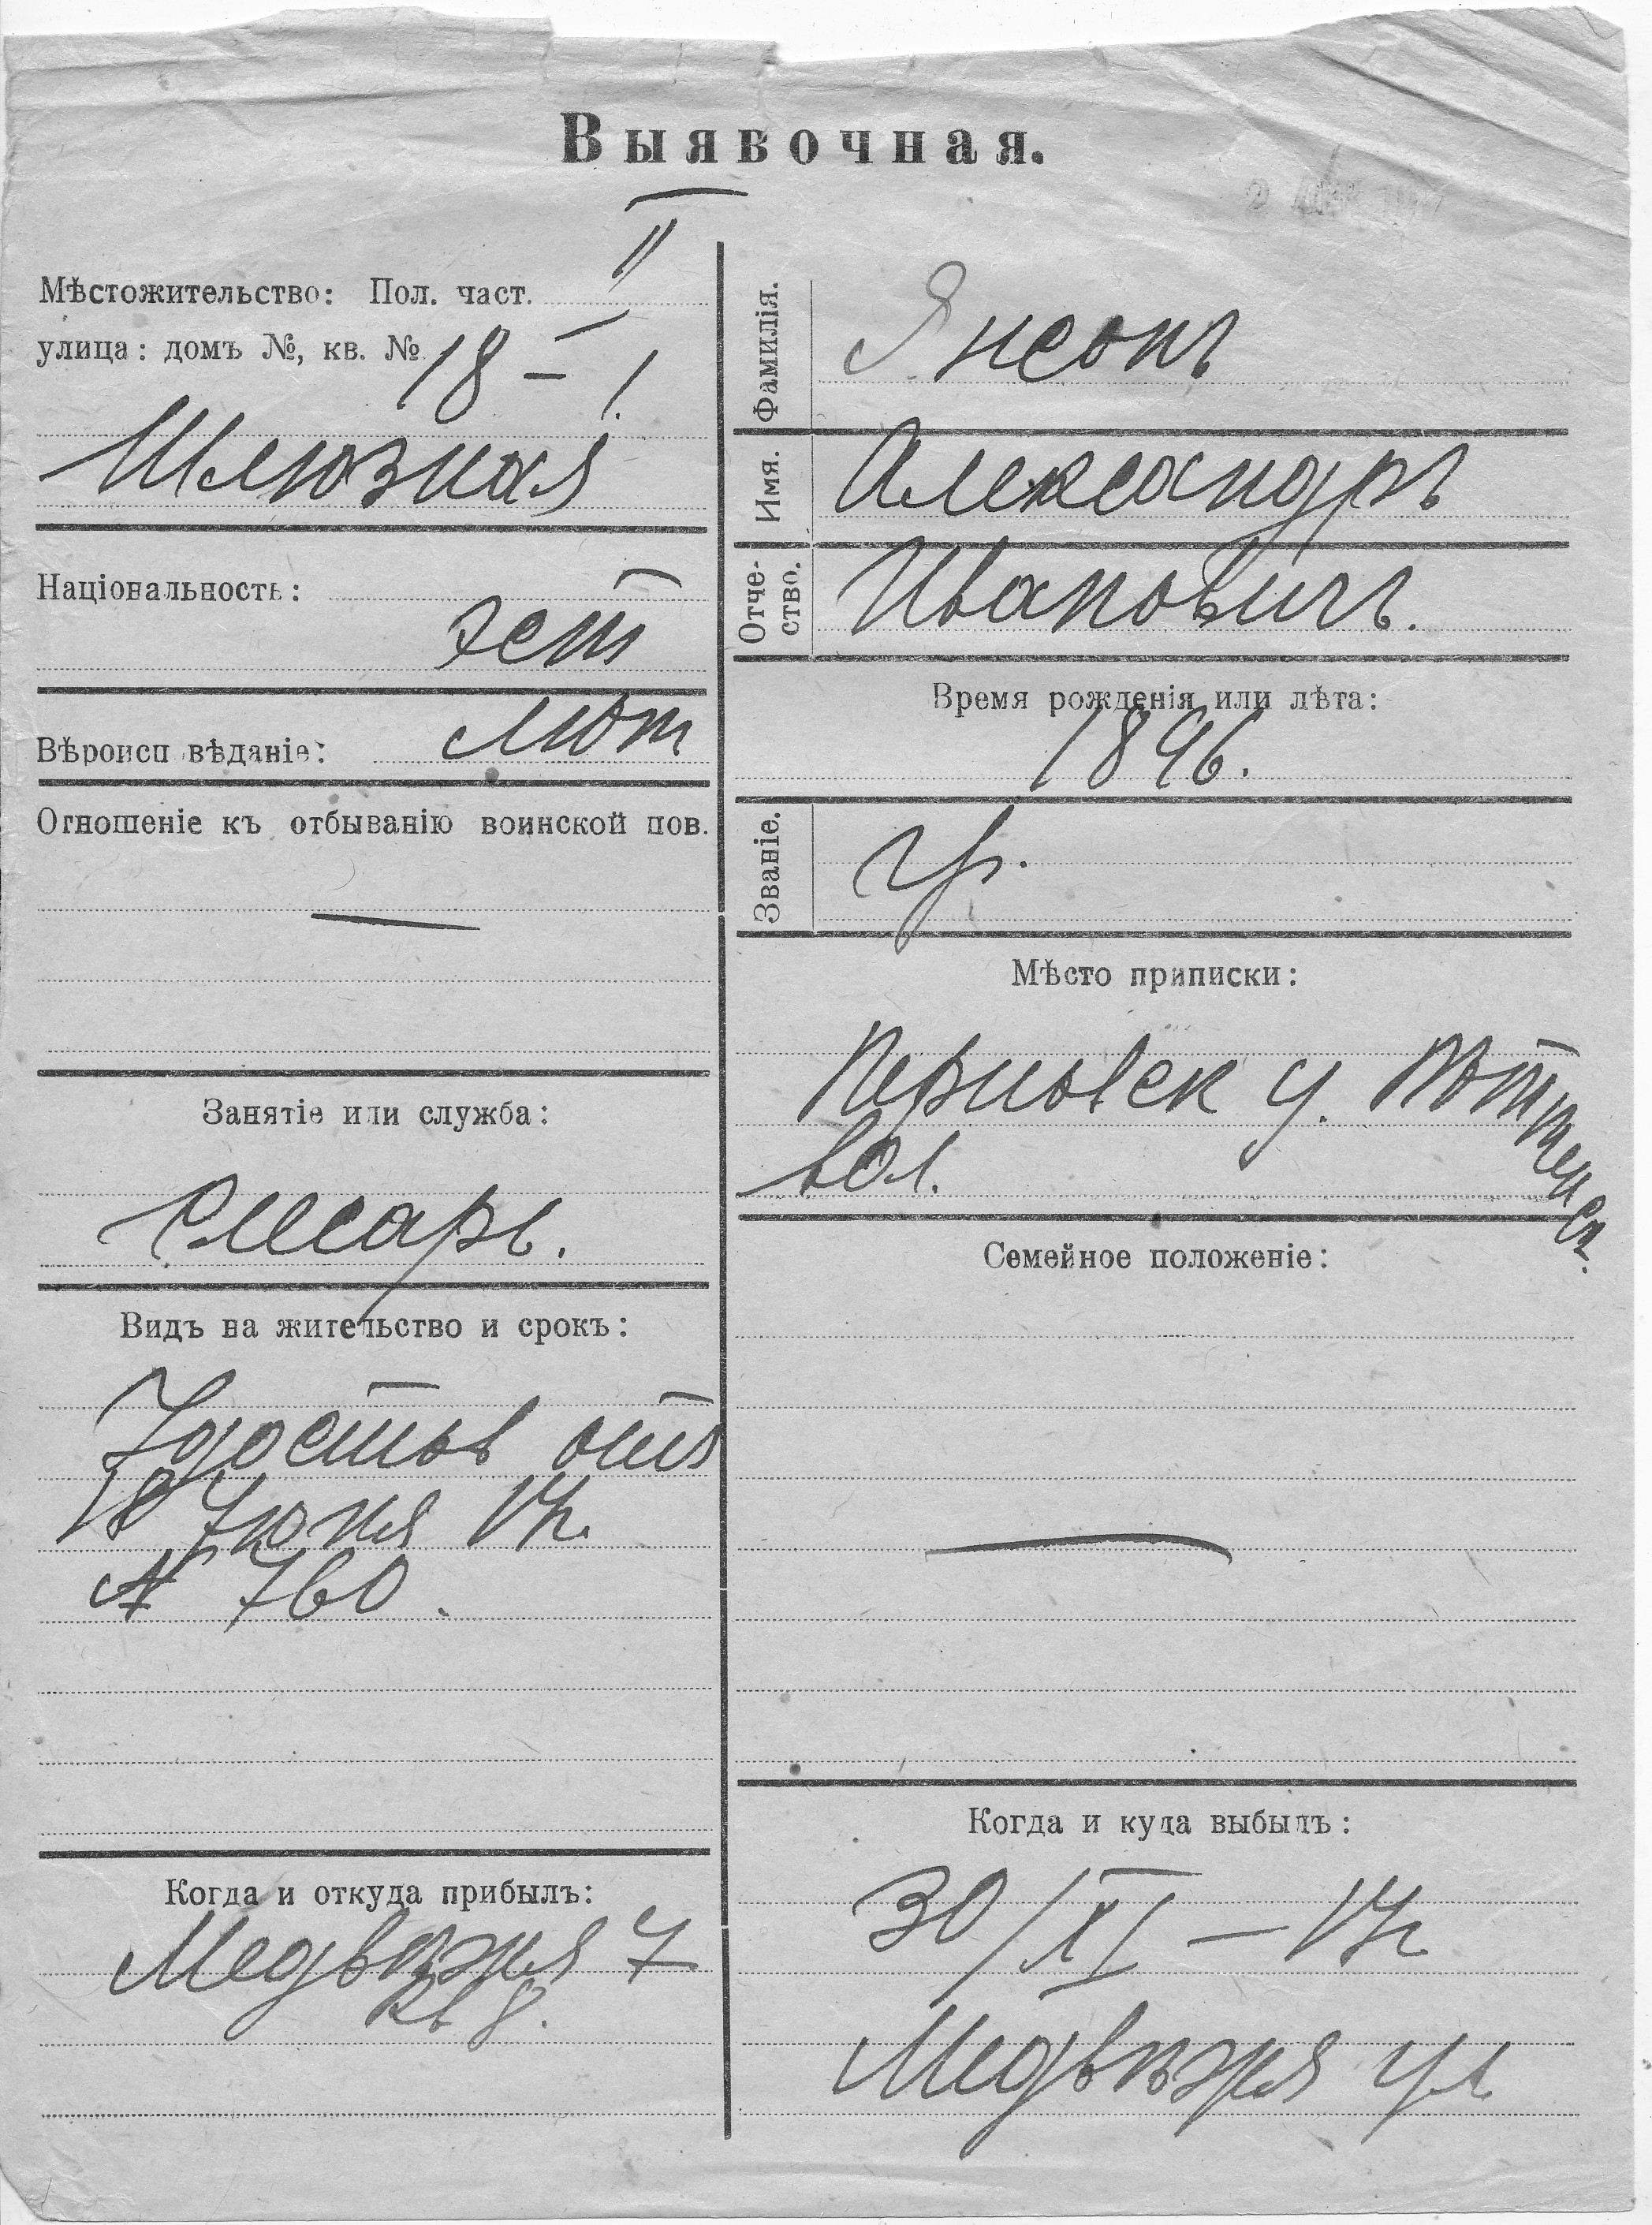 Выявочная.
Мѣстожительство: Пол. част. II
улица: домъ №, кв. № 18 – 1.
Шлюзная
Національность:
эст
Вѣроисп вѣданіе: Лют
Отношеніе къ отбыванію воинской пов.
—
Занятіе или служба:
Слесарь.
Видъ на жительство и срокъ:
Удостов отъ
18 Іюня 17г.
№ 760.
Когда и откуда прибылъ:
Медвѣжья 7
кв 8.
Фамилія. Янсонъ
Имя. Александръ
Отче-
ство. Ивановичъ.
Время рожденія или лѣта:
1896.
Званіе. гр.
Мѣсто приписки:
Перновск у.
вол.
Семейное положеніе:
—
Когда и куда выбылъ:
30/XI – 17г
Медвѣжья ул